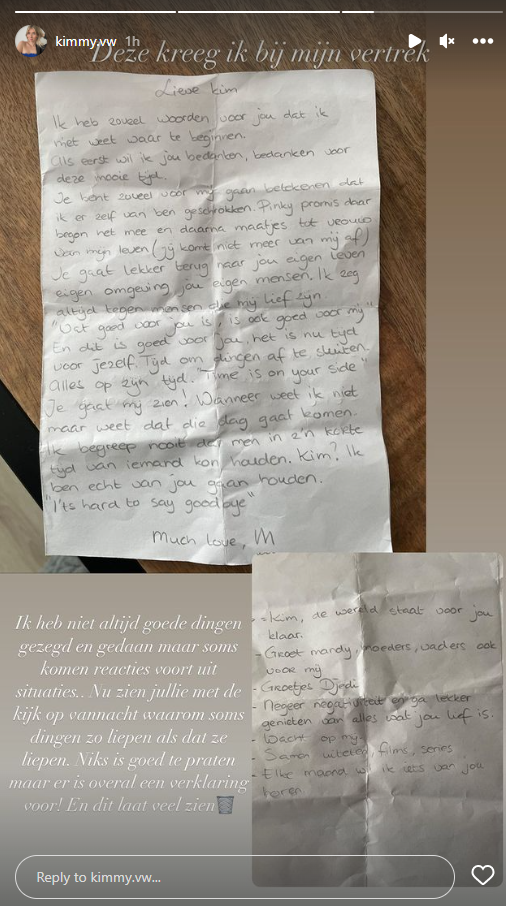 kimmy.vw 1h
Deze kreeg ik bij mijn vertrek
Lieve Kim
Ik heb zoveel woorden voor jou dat ik
niet weet waar te beginnen.
Als eerst wil ik jou bedanken, bedanken voor
deze mooie tijd.
Je bent zoveel voor mij gaan betekenen dat
ik er zelf van ben geschrokken. Pinky promis daar
began het mee en daarna maatjes tot vrouw
van mijn leven (jij komt niet meer van mij af)
Je gaat lekker terug naar jou eigen leven
eigen omgeving jou eigen mensen. Ik zeg
altijd tegen mensen die mij lief zijn
"Wat goed voor jou is, is ook goed voor mij"
En dit is goed voor jou, het is nu tijd
voor jezelf. Tijd om dingen af te sluiten.
Alles op zijn tijd. "Time is on your side"
Je gaat mij zien! Wanneer weet ik niet
maar weet dat die dag gaat komen.
Ik begreep nooit dat men in z'n korte
tijd van iemand kon houden. Kim? Ik
ben echt van jou gaan houden.
"I'ts hard to say goodbye"
Much love, M
Ik heb niet altijd goede dingen
gezegd en gedaan maar soms
komen reacties voort uit
situaties.. Nu zien jullie met de
kijk op vannacht waarom soms
dingen zo liepen als dat ze
liepen. Niks is goed te praten
maar er is overal een verklaring
voor! En dit laat veel zien🗑️
- Kim, de wereld staat voor jou
klaar.
- Groet mandy, moeders, vaders ook
voor mij
- Groetjes Djodi
- Negeer negativiteit en ga lekker
genieten van alles wat jou lief is.
- Wacht op mij
- Samen uiteten, films, series
- Elke maand wil ik iets van jou
horen
Reply to kimmy.vw...